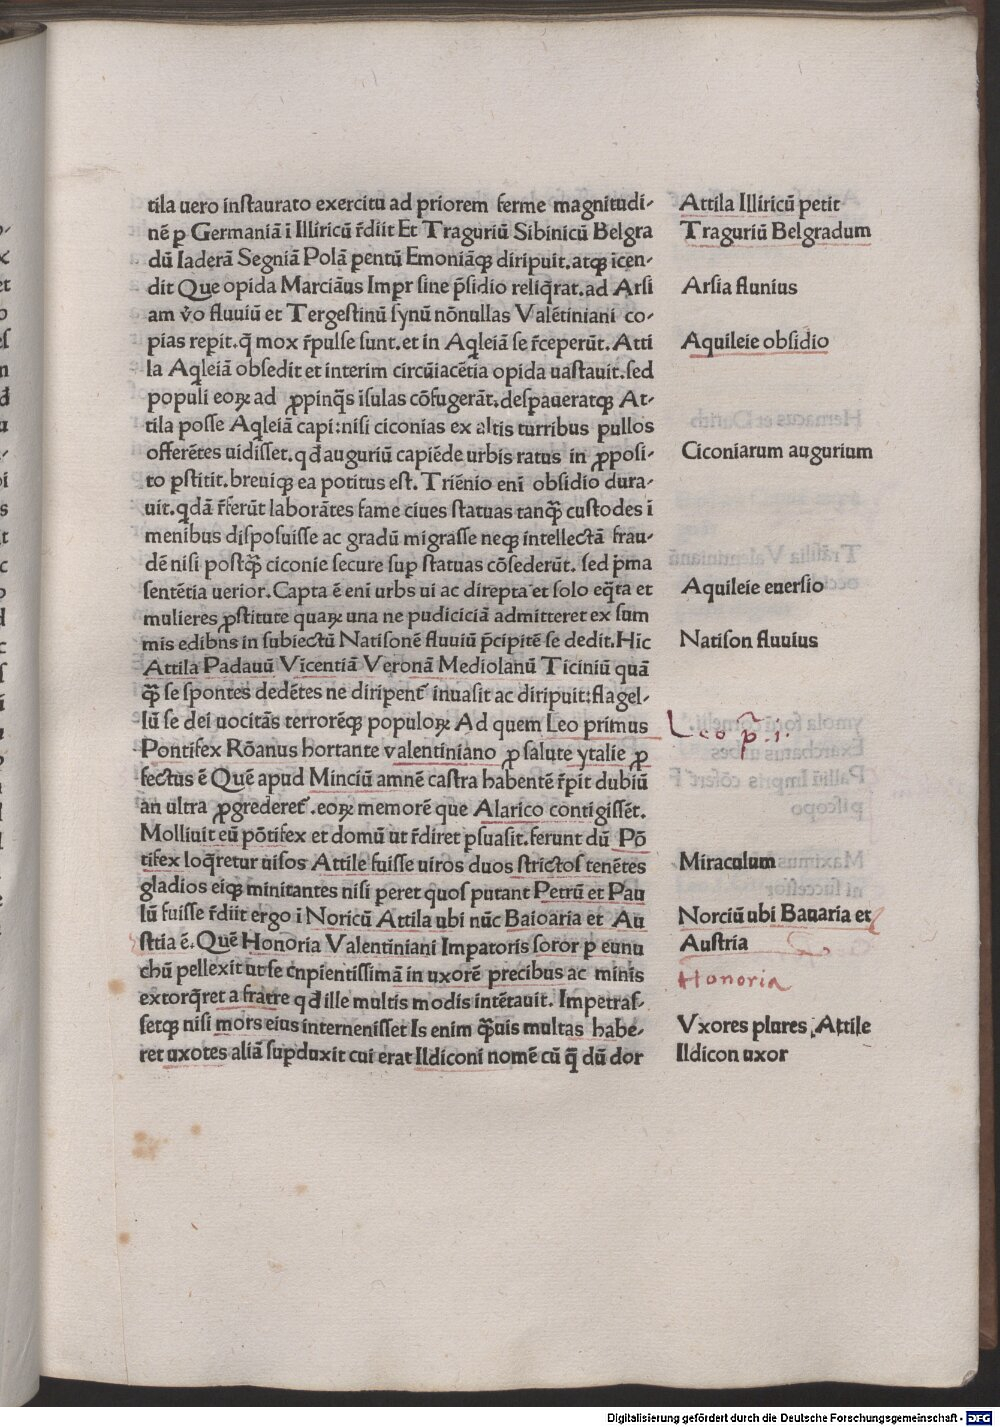 tila uero instaurato exercitu ad priorem ferme magnitudi-
nē p Germaniā i Illiricū r̄diit Et Traguriū Sibinicū Belgra
dū Iaderā Segniā Polā pentū Emoniāqꝫ diripuit.atqꝫ īcen-
dit Que opida Marciāus Impr sine p̄sidio reliq̄rat.ad Arsi
am v̄o fluuiū et Tergestinū synū nōnullas Valētiniani co-
pias repit.q̄ mox r̄pulse sunt.et in Aqleiā se r̄ceperūt. Atti
la Aqleiā obsedit et interim circūiacētia opida uastauit.sed
populi eoꝝ ad ꝓpinq̄s isulas cōfugerāt.despaueratqꝫ At-
tila posse Aqleiā capi:nisi ciconias ex altis turribus pullos
offerētes uidisset.qd auguriū capiēde urbis ratus in ꝓposi-
to pstitit.breuiqꝫ ea potitus est. Triēnio eni obsidio dura-
uit.qdā r̄ferūt laborātes fame ciues statuas tanq̄ custodes i
menibus disposuisse ac gradū migrasse neqꝫ intellectā frau-
dē nisi postq̄ ciconie secure sup statuas cōsederūt. sed p̄ma
sentētia uerior. Capta ē eni urbs ui ac direpta et solo eq̄ta et
mulieres ꝓstitute quaꝝ una ne pudiciciā admitteret ex sum
mis edibns in subiectū Natisonē fluuiū p̄cipitē se dedit. Hic
Attila Padauū Vicentiā Veronā Mediolanū Ticiniū quā
q̄ se spontes dedētes ne diripent᷑ inuasit ac diripuit:flagel-
lū se dei uocitās terrorēqꝫ populoꝝ Ad quem Leo primus
Pontifex Rōanus hortante valentiniano ꝓ salute ytalie ꝓ
fectus ē Quē apud Minciū amnē castra habentē r̄pit dubiū
an ultra ꝓgrederet᷑.eoꝝ memorē que Alarico contigissēt.
Molliuit eū pōtifex et domū ut r̄diret psuasit.ferunt dū Pō
tifex loq̄retur uisos Attile fuisse uiros duos strictos tenētes
gladios eiqꝫ minitantes nisi peret quos putant Petrū et Pau
lū fuisse r̄diit ergo i Noricū Attila ubi nūc Baioaria et Au
stria ē. Quē Honoria Valentiniani Impatoris soror p eunu
chū pellexit ut se cnpientissimā in uxorē precibus ac minis
extorq̄ret a fratre qd ille multis modis intētauit. Impetras-
setqꝫ nisi mors eius internenisset Is enim q̄uis multas habe-
ret uxotes aliā supduxit cui erat Ildiconi nomē cū q̄ dū dor
Attila Illiricū petit
Traguriū Belgradum
Arsia flunius
Aquileie obsidio
Ciconiarum augurium
Aquileie euersio
Natison fluuius
Leo p̄. 1.
Miraculum
Norciū ubi Bauaria et
Austria
Honoria
Vxores plures Attile
Ildicon uxor
Digitalisierung gefördert durch die Deutsche Forschungsgemeinschaft - DFG